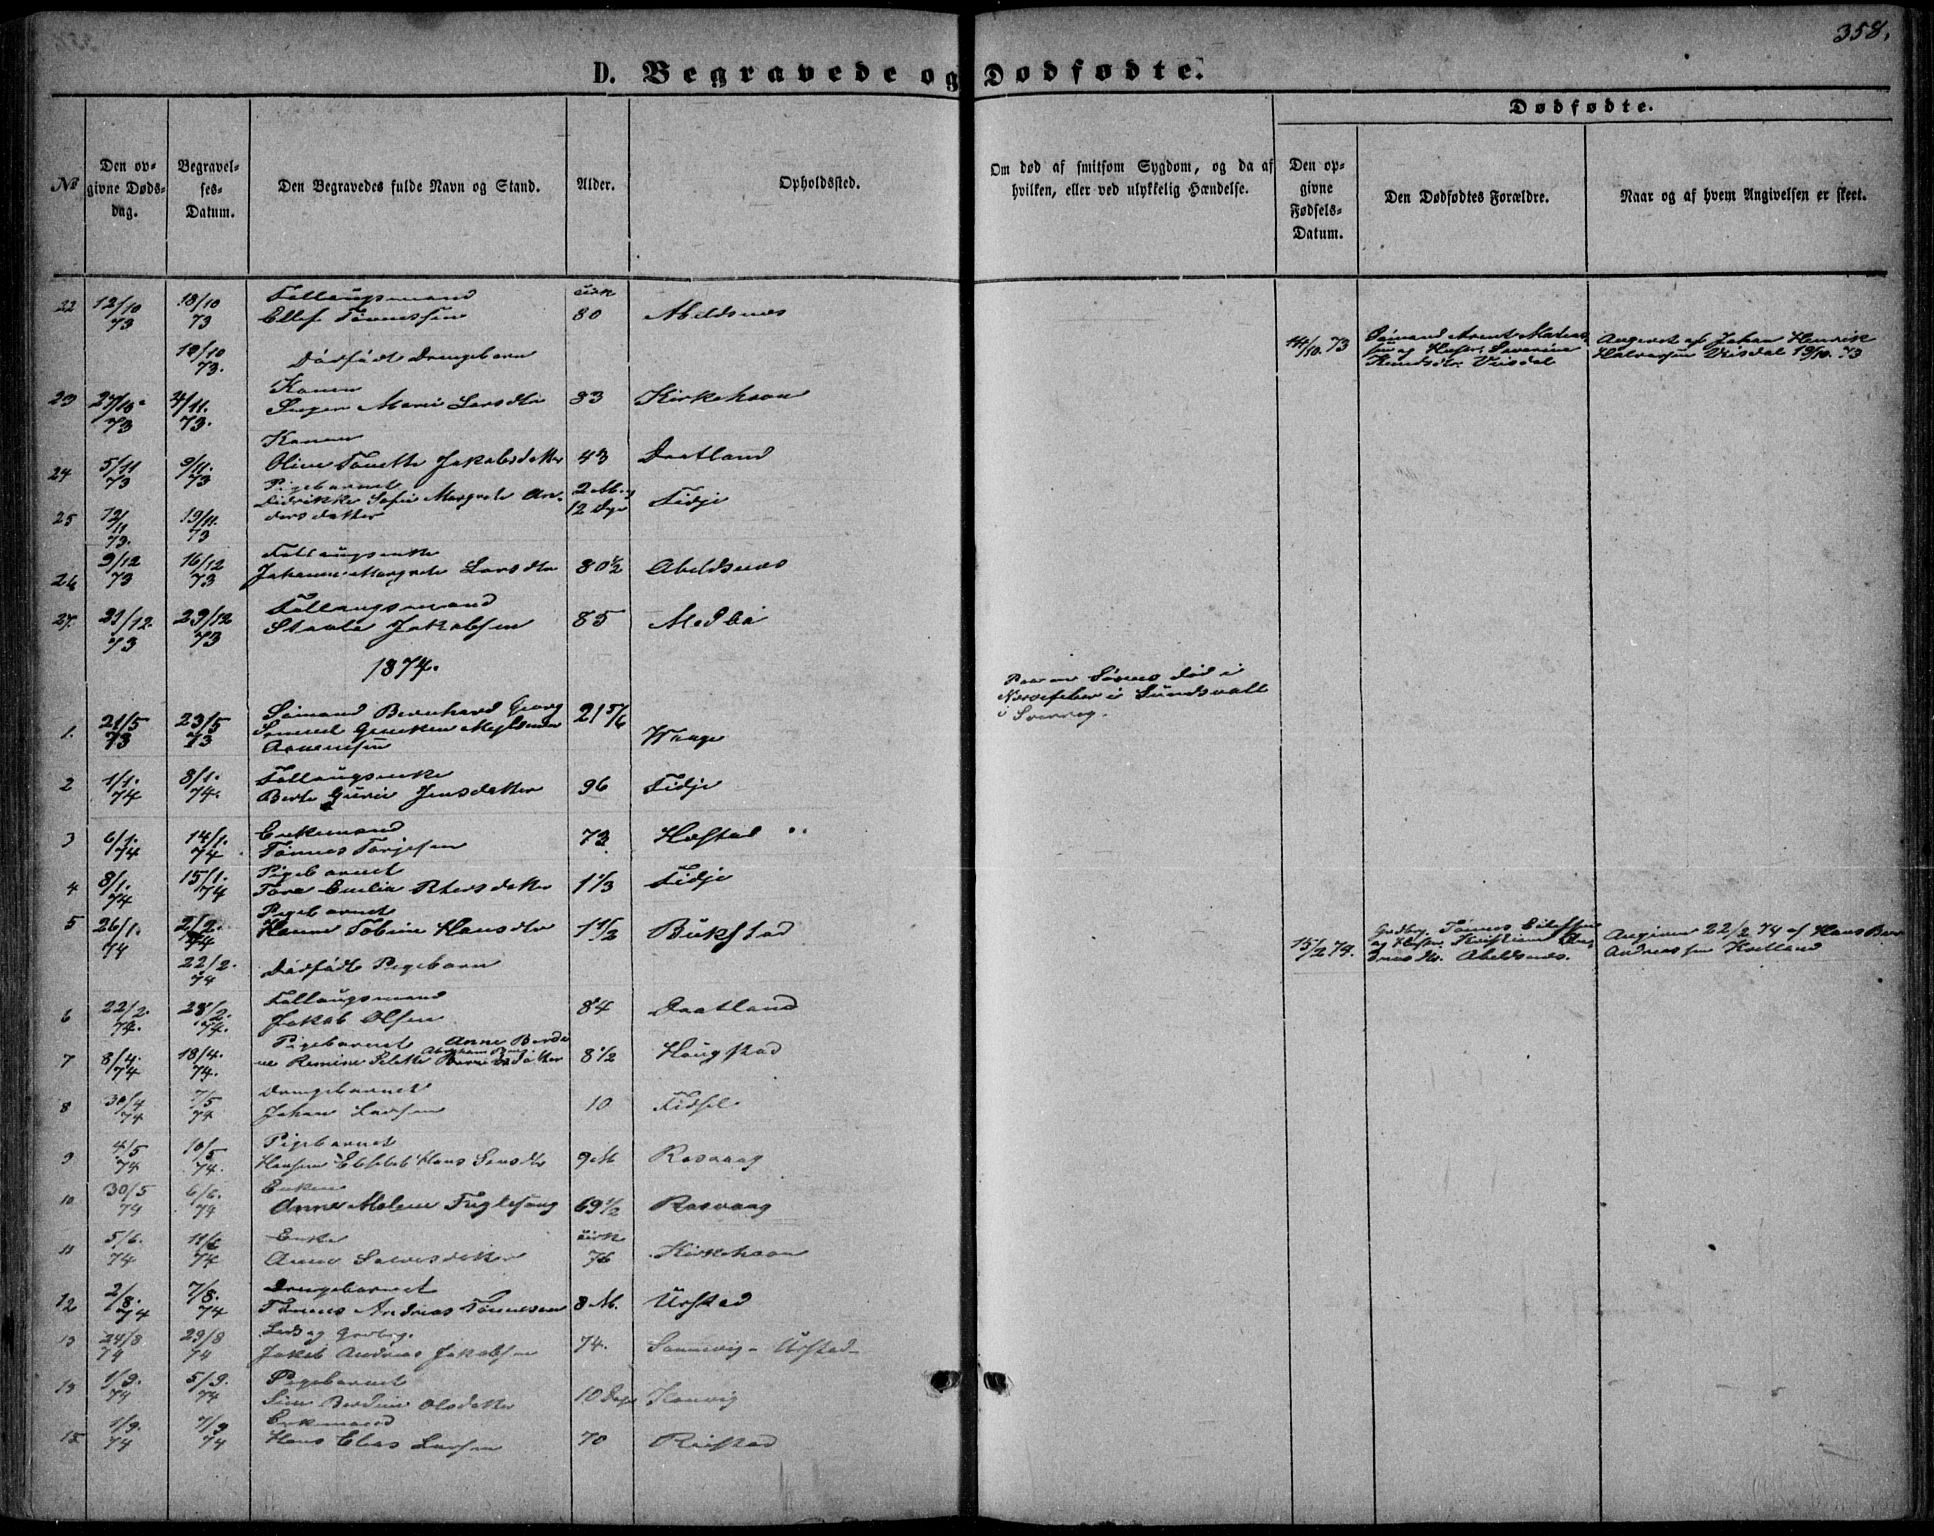 358.
D. Begravede og Dødfødte.
Dødfødte.
No
Den opgivne Dødsdag.
Begravelses-Datum.
Den Begravedes fulde Navn og Stand.
Alder.
Opholdssted.
Om død af smitsom Sygdom, og da af hvilken, eller ved ulykkelig Hændelse.
Den opgivne Fødsels-Datum.
Den Dødfødtes Forældre.
Naar og af hvem Angivelsen er skeet.
22 12/10 73 18/10 73 Føllaugsmand cirk
Ellef Tønnessen 80 Abeldsnes
19/10 73. Dødfødt Drengebarn 14/10. 73 Sømand Arent
Knudsdtr. Veisdal
Angivet af Johan Henrik
Halvorsen Veisdal 19/10. 73
23 27/10 73 4/11. 73. Konen
Marie Larsdtr 83 Kirkehavn
24 5/11 73 9/11. 73 Konen
Oline Tonette Jakobsdatter 43 Daatland
25 12/11 73. 19/11. 73 Pigebarnet
Didrikke Sofie Margrete Andersdatter 2 M. 12 Dge Fidje
26 9/12 73 16/12 73 Føllaugsenke
Johanne Margrete Larsdtr 80 1/2 Abeldsnes
27. 21/12. 73 29/12 73 Føllaugsmand
Staale Jakobsen 85 Medbø
1874.
1. 21/5 73 23/5 73 Sømand Bernhard Georg
21 5/6 Waage
Død i
Nervefeber i Sundsvall
i Sverrig.
2 1/1. 74 8/1. 74. Føllaugsenke
Berte Gurie Jensdatter 96 Fidje
3 6/1. 74 14/1. 74 Enkemand
Tønnes Torjesen 73 Hæstad
4 8/1. 74 15/1. 74 Pigebarnet
Tora Emilie Petersdatter 1 1/3 Fidje
5 26/1. 74 2/2. 74 Pigebarnet
Hanne Tobine Hansdtr 1 1/2 Bukstad
22/2. 74 Dødfødt Pigebarn 15/2 74. Gdbrg. Tønnes Eilefsen
og Hustr. Kristiane Andreasdtr. Abeldsnes.
Angiven 22/2 74 af Hans
Andreassen Kvelland
6 22/2. 74. 28/2. 74. Føllaugsmand
Jakob Olsen 84 Daatland
7 8/4. 74 18/4. 74. Pigebarnet Anne
8 1/2 Haugstad
8 30/4 74 7/5 74 Drengebarnet
Johan Larsen 10 Fidsel
9 4/5 74 10/5 74. Pigebarnet
9 M Rasvaag
10 30/5 74 6/6. 74 Enken
Anne Malene Fuglesang 69 1/2 Rasvaag
11 5/6. 74 11/6 74 Enke cirk
Anne Salvesdatter 76 Kirkehavn
12 2/8. 74 7/8. 74 Drengebarnet
Tønnes Andreas Tønnessen 8 M. Urstad
13 24/8 74 29/8 74 Lods og Gdbrg.
Jakob Andreas Jakobsen 74. Sannevig - Urstad
13 1/9. 74 5/9. 74 Pigebarnet
Sine Berdine Olsdatter 10 Dage
15 1/9. 74 7/9 74 Enkemand
Hans Elias Larsen 70 Reistad